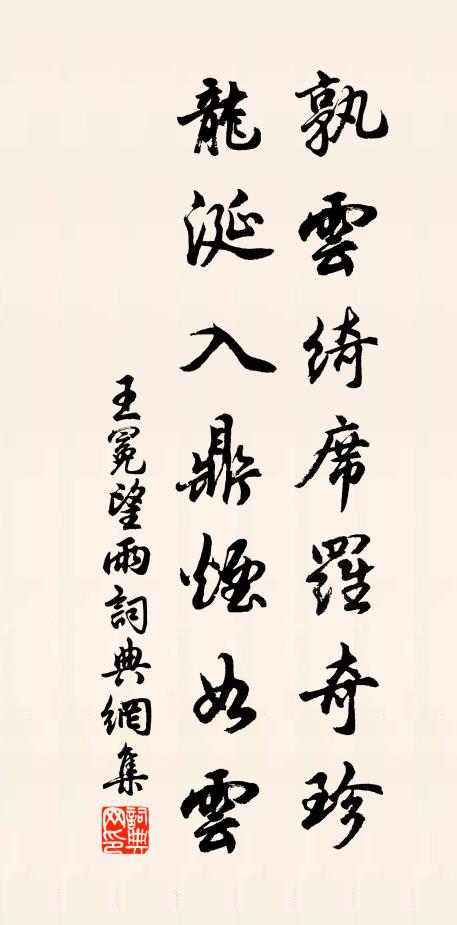 孰雲綺席羅奇珍
龍涎入鼎煙如雲
王冕望雨詞典網集
詞典网印